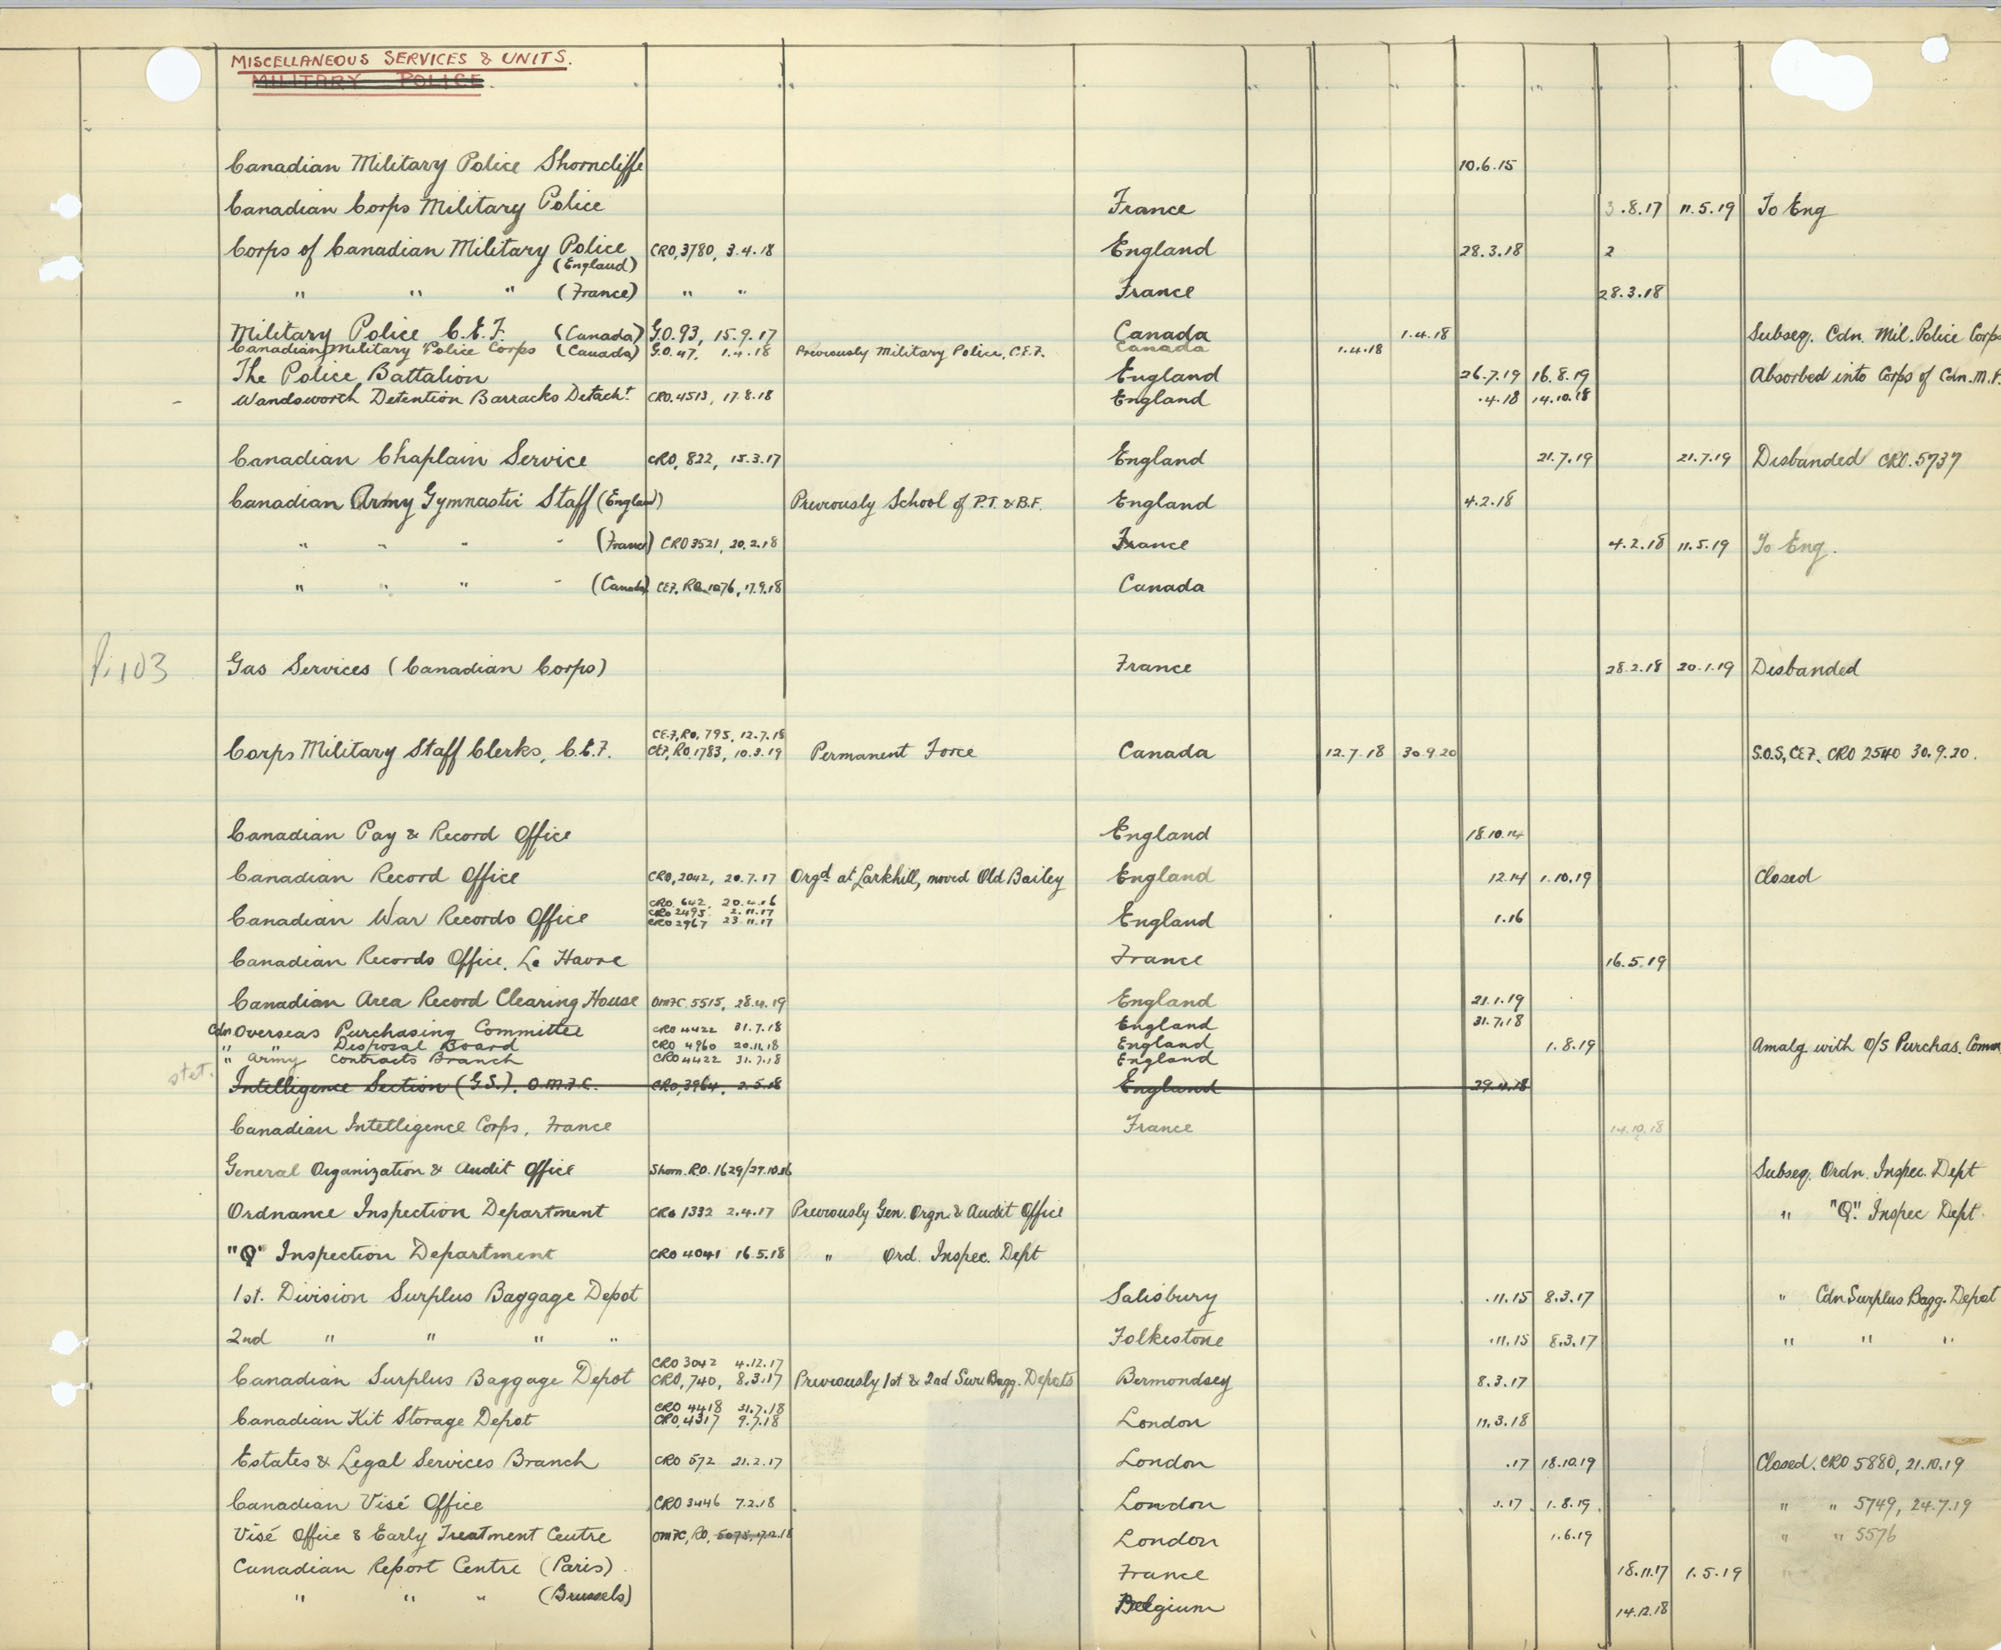 MISCELLANEOUS SERVICES & UNITS.
MILITARY POLICE.
Canadian Military Police Shorncliffe 10.6.15
Canadian Corps Military Police France 3.8.17 11.5.19 To Eng
Corps of Canadian Military Police CRO, 3780, 3.4.18 England 28.3.18 2
(England)
" " " (France) " " France 28.3.18
Military Police C.E.F. (Canada) G.O. 93, 15.9.17 Canada 1.4.18 Subseq. Cdn. Mil. Police Corps
Canadian Military Police Corps (Canada) G.O. 47, 1.4.18 Previously Military Police, C.E.F. Canada 1.4.18
The Police Battalion England 26.7.19 16.8.19 Absorbed into Corps of Cdn. M.P.
Wandsworth Detention Barracks Detacht CRO. 4513, 17.8.18 England .4.18 14.10.18
Canadian Chaplain Service CRO, 822, 15.3.17 England 21.7.19 21.7.19 Disbanded CRO. 5737
Canadian Army Gymnastic Staff (England) Previously School of P.T. & B.F. England 4.2.18
" " " " (France) CRO 3521, 20.2.18 France 4.2.18 11.5.19 To Eng.
" " " " (Canada) CEF. RO. 1076, 17.9.18 Canada
P. 103 Gas Services (Canadian Corps) France 28.2.18 20.1.19 Disbanded
CEF, RO, 795, 12.7.18
Corps Military Staff Clerks, C.E.F. CEF, RO. 1783, 10.3.19 Permanent Force Canada 12.7.18 30.9.20 S.O.S, CEF. CRO 2540 30.9.20.
Canadian Pay & Record Office England 18.10.14
Canadian Record Office CRO, 2042, 20.7.17 Orgd at Larkhill, moved Old Bailey England 12.14 1.10.19 Closed
CRO, 642, 20.4.16
CRO 2495 2.11.17
Canadian War Records Office CRO 2967 23.11.17 England 1.16
Canadian Records Office, Le Havre France 16.5.19
Canadian Area Record Clearing House OMFC. 5515, 28.4.19 England 21.1.19
Cdn Overseas Purchasing Committee CRO 4422 31.7.18 England 31.7.18
" " Disposal Board CRO 4960 20.11.18 England 1.8.19 Amalg with O/S Purchas. Comm
" Army Contracts Branch CRO 4422 31.7.18 England
stet. Intelligence Section (G.S.). O.M.F.C. CRO, 3964, 2.5.18 England 29.4.18
Canadian Intelligence Corps, France France 14.10.18
General Organization & Audit Office Shorn. RO. 1629/27.10.16 Subseq. Ordn. Inspec. Dept
Ordnance Inspection Department CRO 1332 2.4.17 Previously Gen. Orgn. & Audit Office " "Q". Inspec Dept.
"Q" Inspection Department CRO 4041 16.5.18 " Ord. Inspec. Dept
1st. Division Surplus Baggage Depot Salisbury .11.15 8.3.17 " Cdn Surplus Bagg. Depot
2nd " " " " Folkestone .11.15 8.3.17 " " "
CRO 3042 4.12.17
Canadian Surplus Baggage Depot CRO, 740, 8.3.17 Previously 1st & 2nd Sur. Bagg. Depots Bermondsey 8.3.17
CRO 4418 31.7.18
Canadian Kit Storage Depot CRO, 4317 9.7.18 London 11.3.18
Estates & Legal Services Branch CRO 572 21.2.17 London .17 18.10.19 Closed. CRO 5880, 21.10.19
Canadian Visé Office CRO 3446 7.2.18 London 1.17 1.8.19 " " 5749, 24.7.19
Visé Office & Early Treatment Centre OMFC, RO, 5075, 17.12.18 London 1.6.19 " " 5576
Canadian Report Centre (Paris) France 18.11.17 1.5.19 "
" " " (Brussels) Belgium 14.12.18